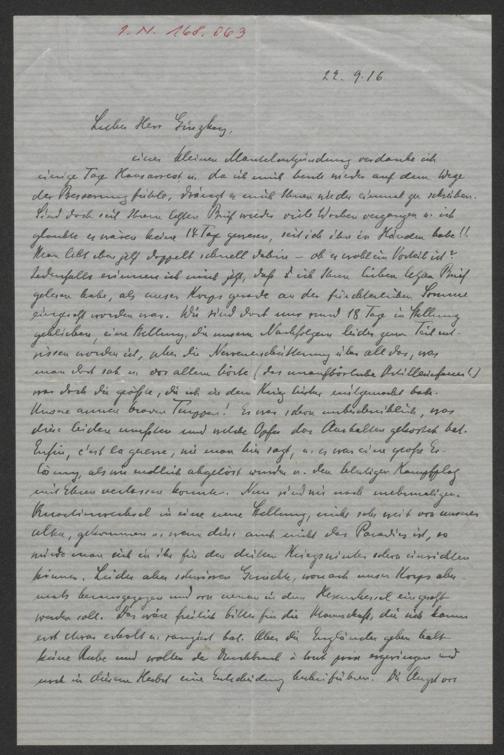 I. N. 168.063
22.9.16
Lieber Herr Ginzkey,
einer kleinen Mandelentzündung verdanke ich
einige Tage Hausarrest u. da ich mich heute wieder auf dem Wege
der Besserung fühle, drängt es mich Ihnen wieder einmal zu schreiben.
Sind doch seit Ihrem letzten Brief wieder viele Wochen vergangen u. ich
glaubte es wären keine 14 Tage gewesen, seit ich ihn in Händen habe!!
Man lebt eben jetzt doppelt schnell dahin – ob es wohl ein Vorteil ist?
Jedenfalls erinnere ich mich jetzt, daß ich Ihren lieben letzten Brief
gelesen habe, als unser Korps gerade an der fürchterlichen Somme
eingesetzt worden war. Wir sind dort nur rund 18 Tage in Stellung
geblieben, eine Stellung, die unsern Nachfolgern leider zum Teil ent-
rissen worden ist, aber die Nervenerschütterung über all das, was
man dort sah u. vor allem hörte (das unaufhörliche Artilleriefeuer!)
war doch die größte, die ich in dem Krieg bisher mitgemacht habe.
Unsere armen braven Truppen! Es war schon unbeschreiblich, was
diese leiden mußten und welche Opfer das Aushalten gekostet hat.
Enfin, c'est la guerre, wie man hier sagt, u. es war eine große Er-
lösung, als wir endlich abgelöst wurden u. den blutigen Kampfplatz
mit Ehren verlassen konnten. Nun sind wir nach mehrmaligem
Quartierwechsel in eine neue Stellung, nicht sehr weit von unserer
alten, gekommen u. wenn dies auch nicht das Paradies ist, so
würde man sich in ihr für den dritten Kriegswinter schon einrichten
können. Leider aber schwirren Gerüchte, wonach unser Korps aber-
mals herausgezogen und von neuem in dem Hexenkessel eingesetzt
werden soll. Das wäre freilich bitter für die Mannschaft, die sich kaum
erst etwas erholt u. rangiert hat. Aber die Engländer geben halt
keine Ruhe und wollen den Durchbruch à tout prix erzwingen und
noch in diesem Herbst eine Entscheidung herbeiführen. Die Angst vor